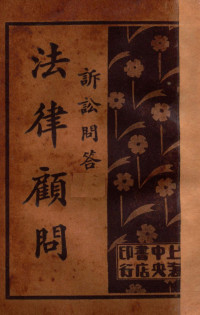 訴訟問答
法律顧問
上海中央書店印行